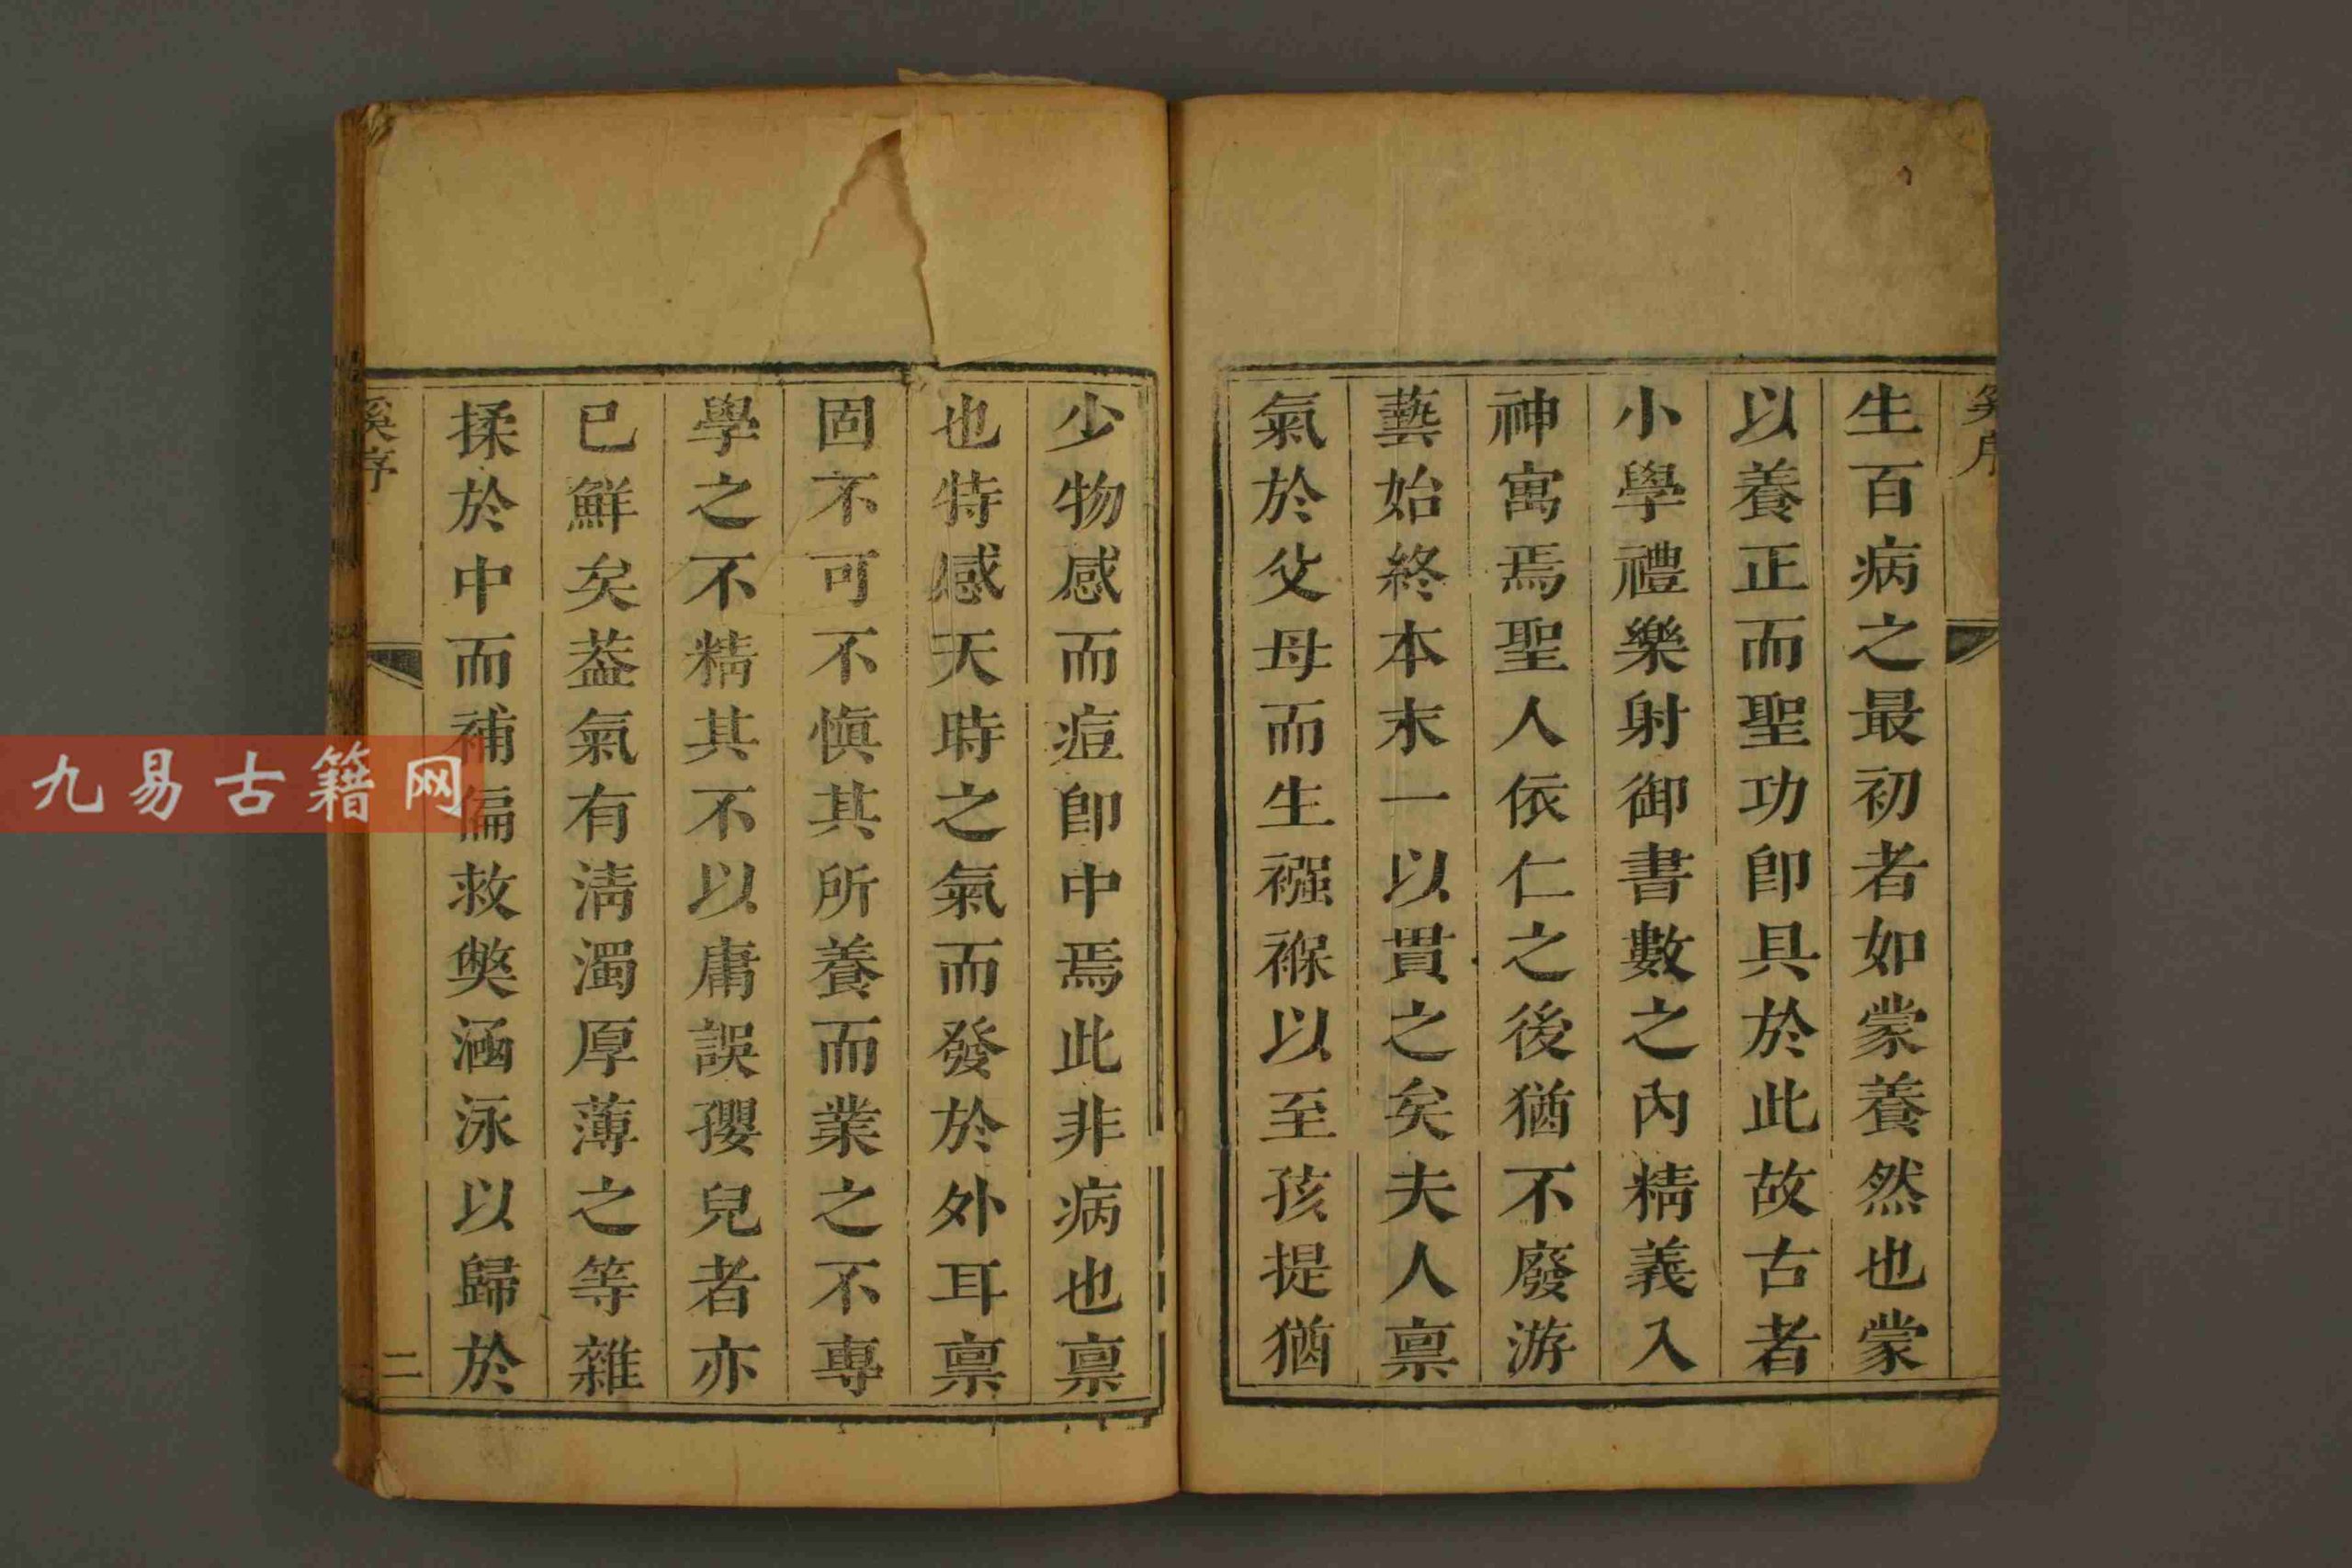 生百病之最初者如蒙養然也蒙
以養正而聖功卽具於此故古者
小學禮樂射御書數之內精義入
神寓焉聖人依仁之後猶不廢游
藝始終本末一以貫之矣夫人禀
氣於父母而生襁褓以至孩提猶
少物感而痘卽中焉此非病也禀
也特感天時之氣而發於外耳禀
固不可不慎其所養而業之不專
學之不精其不以庸誤孾兒者亦
已鮮矣葢氣有清濁厚薄之等雜
揉於中而補偏救獘涵泳以歸於
序
二
九易古籍网